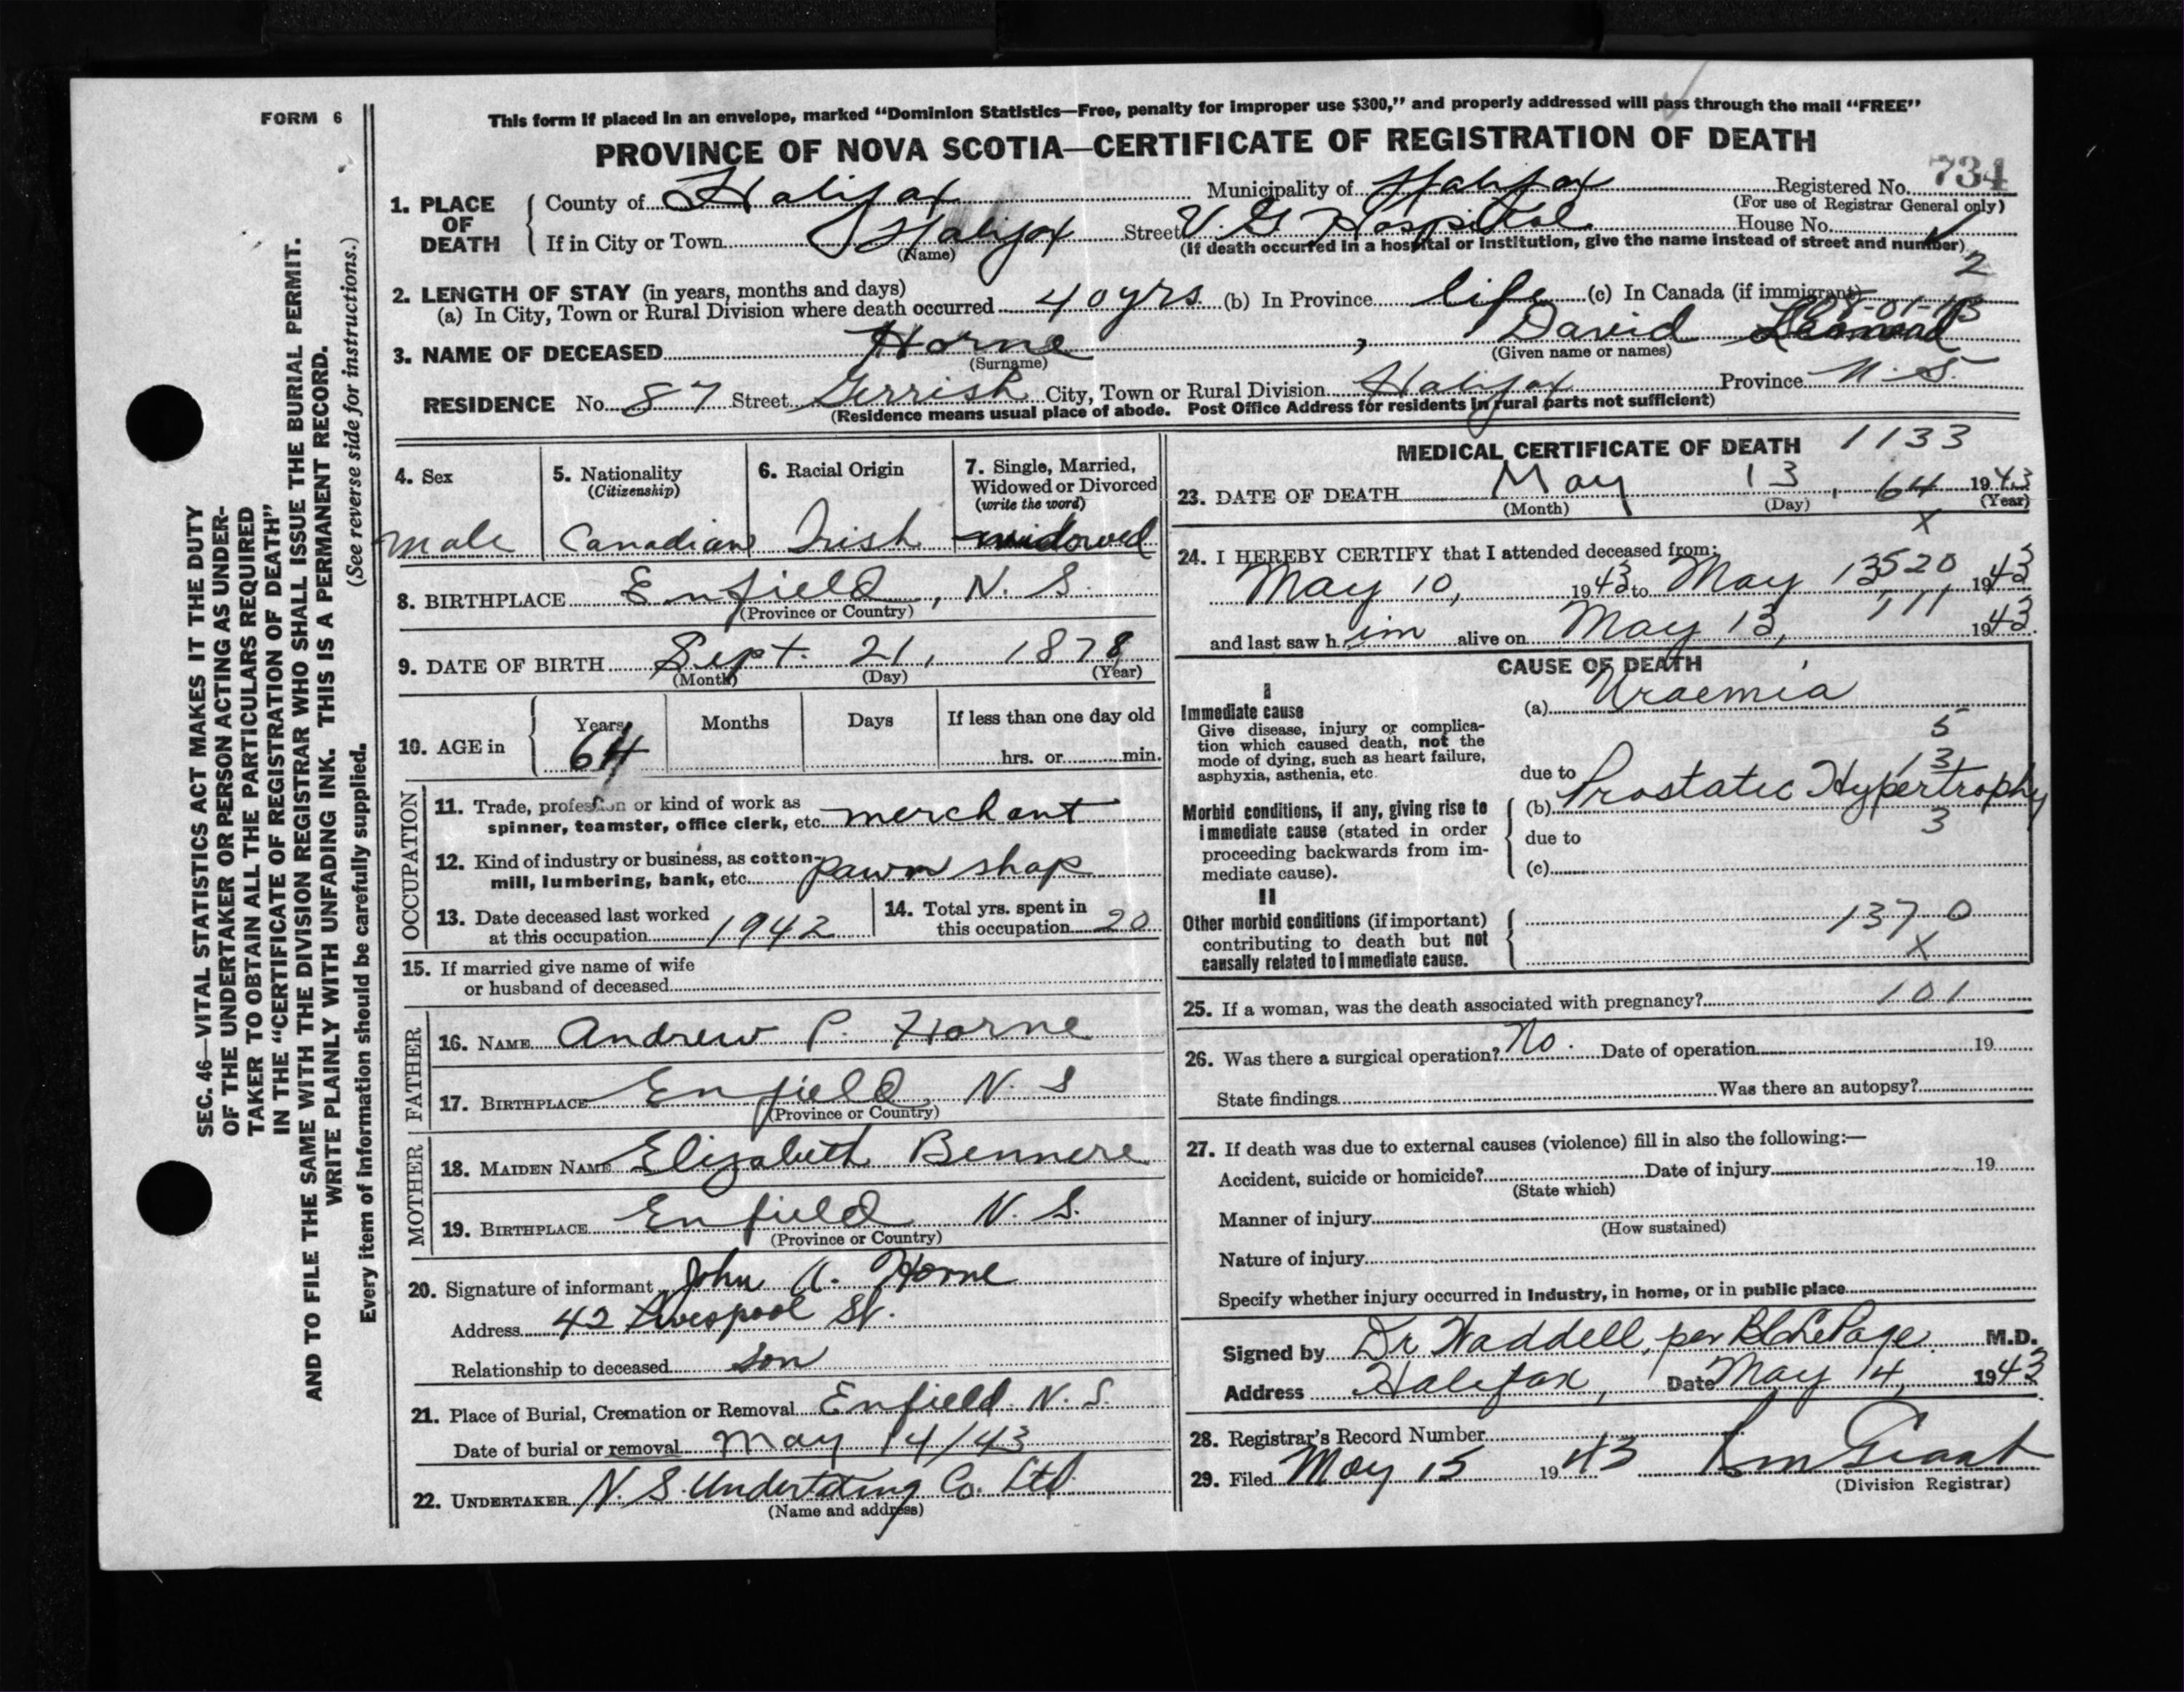 FORM 6
This form if placed in an envelope, marked “Dominion Statistics—Free, penalty for improper use $300,” and properly addressed will pass through the mail “FREE”
PROVINCE OF NOVA SCOTIA—CERTIFICATE OF REGISTRATION OF DEATH
1. PLACE OF DEATH County of Halifax Municipality of Halifax Registered No. 734
(For use of Registrar General only)
If in City or Town Halifax Street V. G Hospital House No.
(Name) (If death occurred in a hospital or institution, give the name instead of street and number)
2
2. LENGTH OF STAY (in years, months and days)
(a) In City, Town or Rural Division where death occurred 40 yrs (b) In Province life (c) In Canada (if immigrant)
3. NAME OF DECEASED Horne, David
(Surname) (Given name or names)
RESIDENCE No. 87 Street Gerrish City, Town or Rural Division Halifax Province N. S.
(Residence means usual place of abode. Post Office Address for residents in rural parts not sufficient)
4. Sex 5. Nationality (Citizenship) 6. Racial Origin 7. Single, Married, Widowed or Divorced (write the word)
male Canadian Irish widowed
8. BIRTHPLACE Enfield, N. S.
(Province or Country)
9. DATE OF BIRTH Sept. 21, 1878
(Month) (Day) (Year)
10. AGE in Years Months Days If less than one day old
64 hrs. or min.
OCCUPATION
11. Trade, profession or kind of work as spinner, teamster, office clerk, etc. merchant
12. Kind of industry or business, as cotton-mill, lumbering, bank, etc. pawn shop
13. Date deceased last worked at this occupation 1942
14. Total yrs. spent in this occupation 20
15. If married give name of wife or husband of deceased
FATHER
16. NAME Andrew P. Horne
17. BIRTHPLACE Enfield, N. S
(Province or Country)
MOTHER
18. MAIDEN NAME Elizabeth Bennere
19. BIRTHPLACE Enfield N. S.
(Province or Country)
20. Signature of informant John A. Horne
Address 42 Liverpool St.
Relationship to deceased son
21. Place of Burial, Cremation or Removal Enfield N. S.
Date of burial or removal May 14/43
22. UNDERTAKER N. S. Undertaking Co. Ltd
(Name and address)
MEDICAL CERTIFICATE OF DEATH 1133
23. DATE OF DEATH May 13, 64 1943
(Month) (Day) (Year)
X
24. I HEREBY CERTIFY that I attended deceased from:
May 10, 1943 to May 13 520 1943
111
and last saw h im alive on May 13, 1943
CAUSE OF DEATH
I
Immediate cause
Give disease, injury or complication which caused death, not the mode of dying, such as heart failure, asphyxia, asthenia, etc.
(a) Uraemia
5
13
due to
Morbid conditions, if any, giving rise to immediate cause (stated in order proceeding backwards from immediate cause).
(b) Prostatic Hypertrophy
3
due to
(c)
II
Other morbid conditions (if important) contributing to death but not causally related to immediate cause.
1370
X
25. If a woman, was the death associated with pregnancy? 101
26. Was there a surgical operation? No. Date of operation 19
State findings Was there an autopsy?
27. If death was due to external causes (violence) fill in also the following:—
Accident, suicide or homicide? Date of injury 19
(State which)
Manner of injury
(How sustained)
Nature of injury
Specify whether injury occurred in industry, in home, or in public place
Signed by Dr Waddell, per LePage M.D.
Address Halifax, Date May 14, 1943
28. Registrar's Record Number
29. Filed May 15 1943 Grant
(Division Registrar)
SEC. 46—VITAL STATISTICS ACT MAKES IT THE DUTY
OF THE UNDERTAKER OR PERSON ACTING AS UNDER-
TAKER TO OBTAIN ALL THE PARTICULARS REQUIRED
IN THE “CERTIFICATE OF REGISTRATION OF DEATH”
AND TO FILE THE SAME WITH THE DIVISION REGISTRAR WHO SHALL ISSUE THE BURIAL PERMIT.
WRITE PLAINLY WITH UNFADING INK. THIS IS A PERMANENT RECORD.
Every item of information should be carefully supplied. (See reverse side for instructions.)